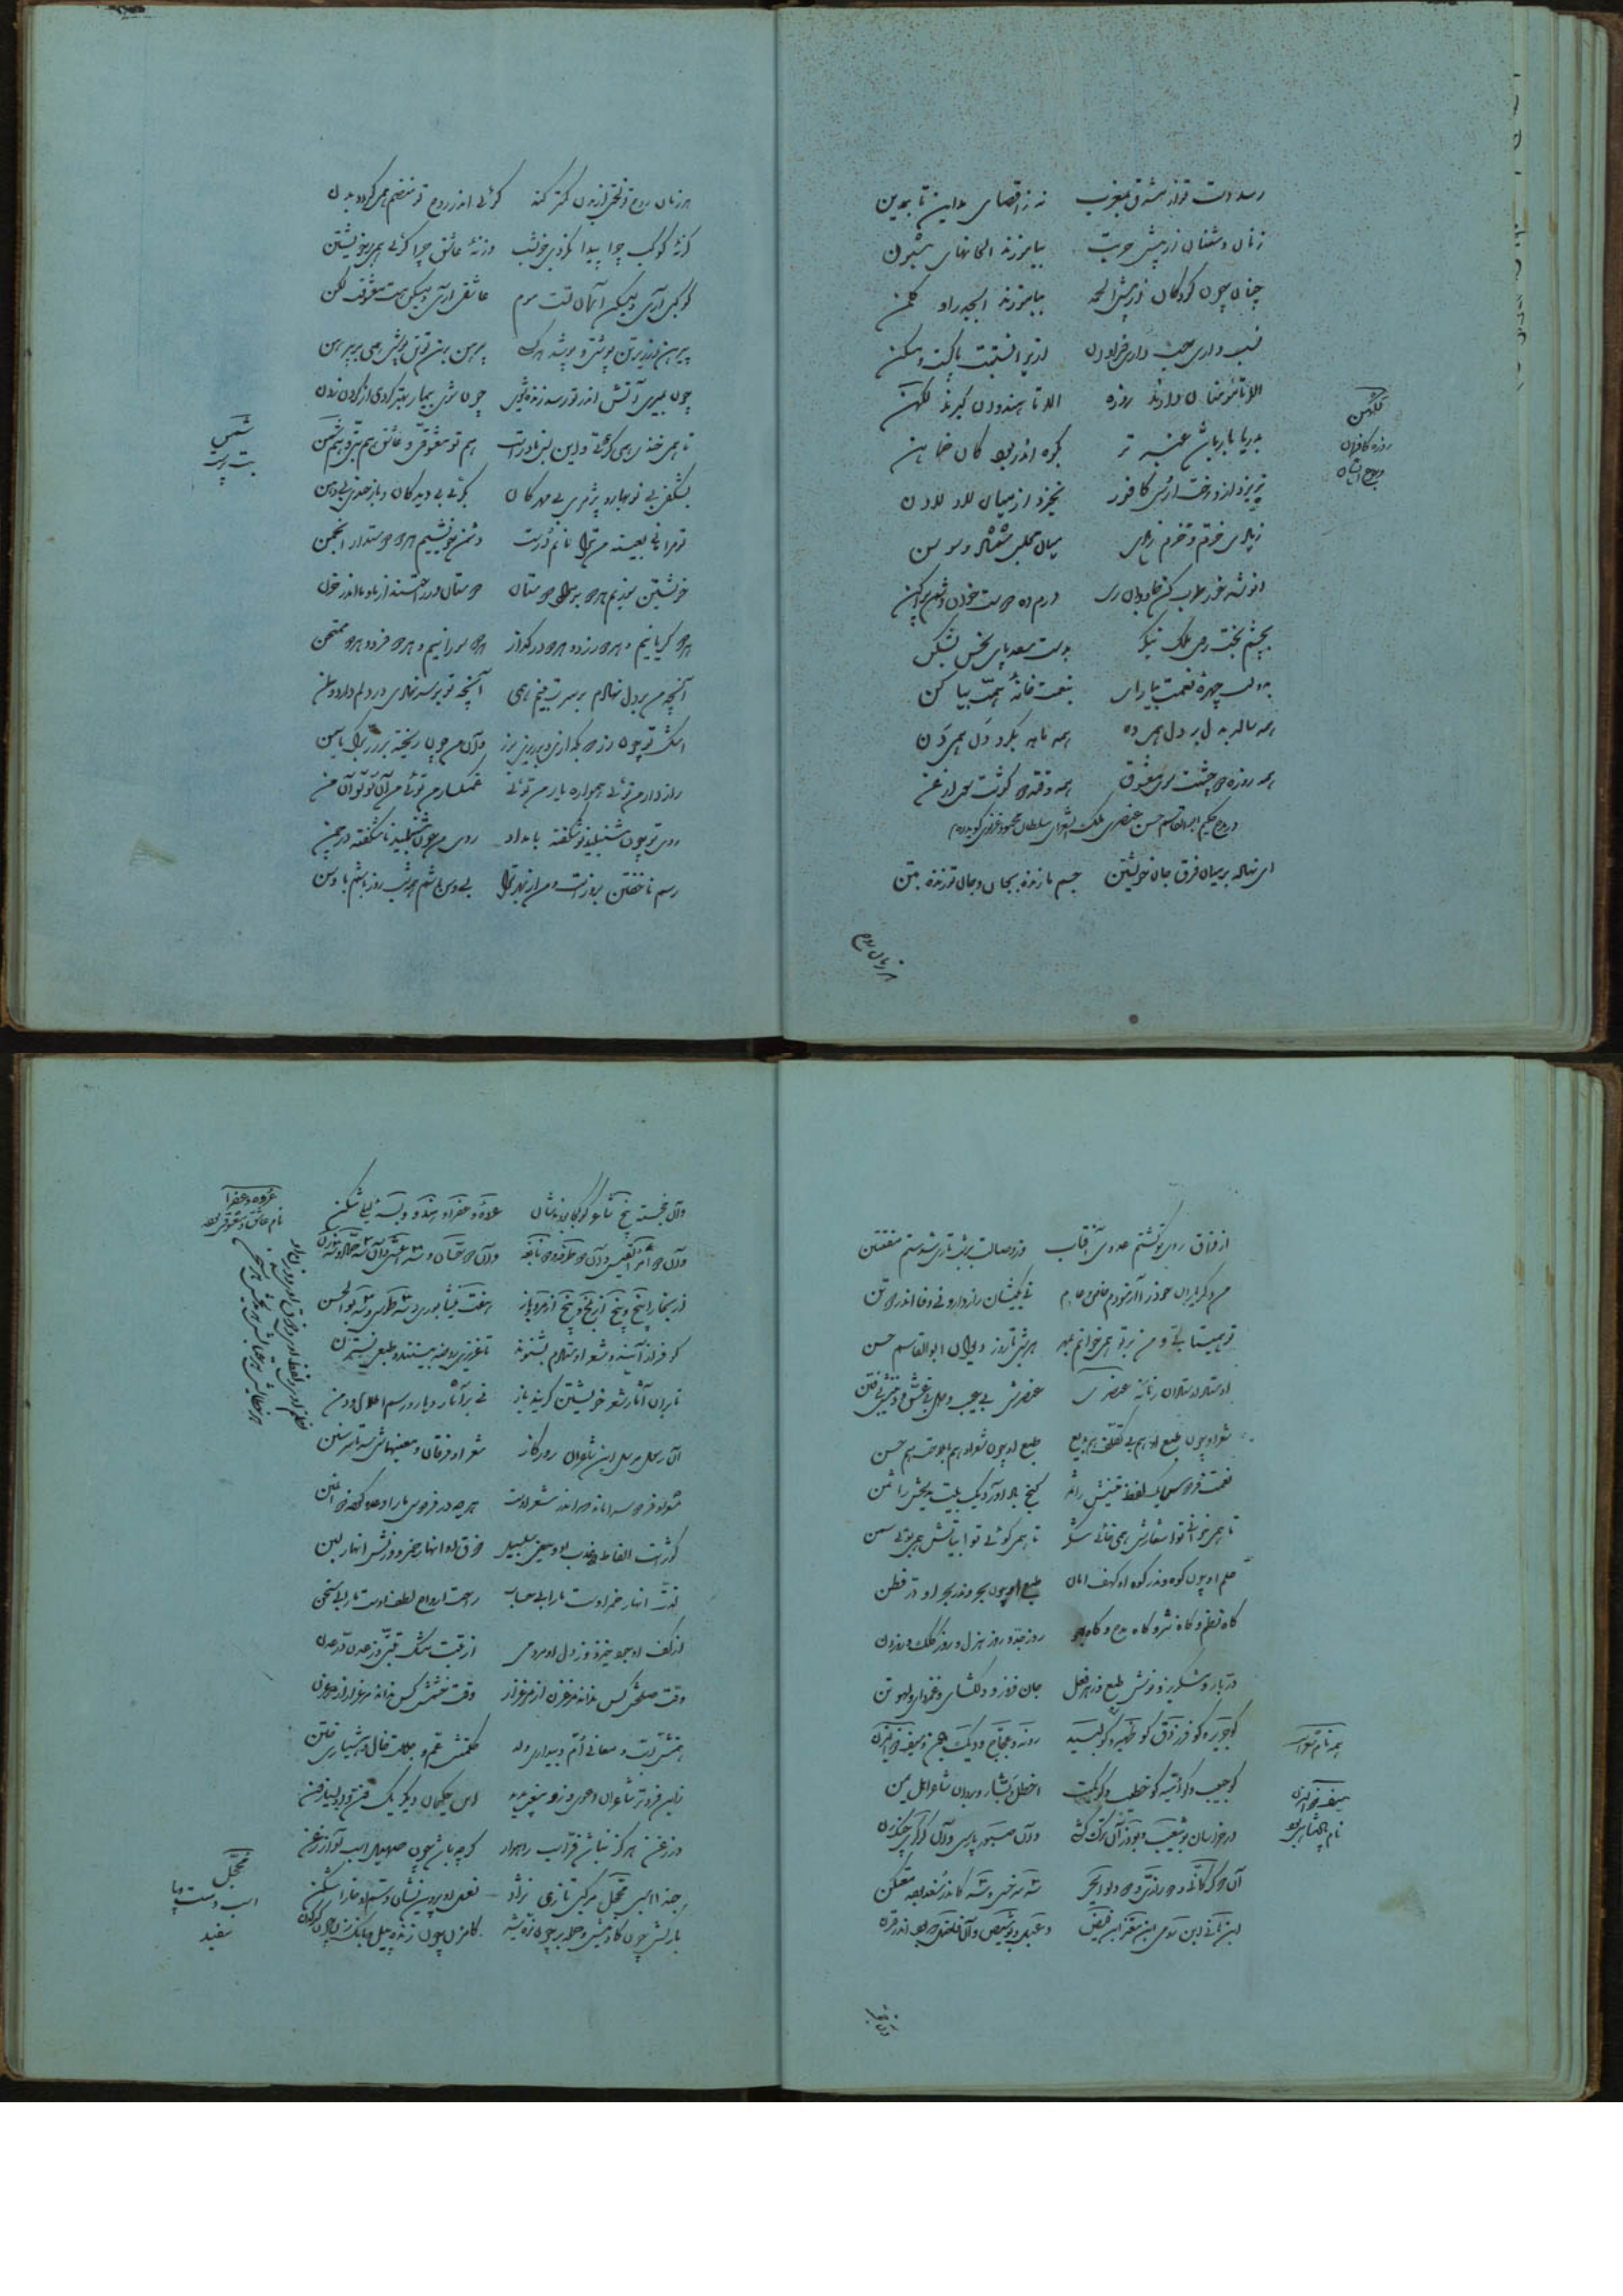 رسد دست تو از مشرق بمغرب ز اقصای مداین تا بمدین
زنان دشمنان از پیش ضربت بیاموزند الحانهای شیون
چنان چون کودکان از پیش الحمد بیاموزند ابجد را و کلمن
نسب داری حسب داری فراوان ازیرا نسبتت پاکست و مسکن
الا تا مؤمنان دارند روزه الا تا هندوان گیرند لکهن
بدریا بار باشد عنبر تر بکوه اندر بود کان خماهن
نریزد از درخت ارس کافور نخیزد از میان لاد لادن
زیادی خرم و خرم زیادی میان مجلس شمشاد و سوسن
انوشه خور طرب کن جاودان زی درم ده دوست خوان دشمن پراکن
بچشم بخت روی ملک بنگر بدست سعد پای نحس بشکن
بدولت چهره نعمت بیارای بنعمت خانه همت بیاکن
همه ساله به دلبر دل همی ده همه ماهه بگرد دن همی دن
همه روزه دو چشمت سوی معشوق همه وقته دو گوشت سوی ارغن
در مدح حکیم ابوالقاسم حسن عنصری ملک الشعرای سلطان محمود غزنوی گوید
ای نهاده بر میان فرق جان خویشتن جسم ما زنده بجان و جان تو زنده بتن
هر زمان روح
لکهن
روزه کافران
هر زمان روح تو لختی از بدن کمتر کند گوئی اندر روح تو منضم همی گردد بدن
گر نه کوکب چرا پیدا نگردی جز بشب ور نه عاشق چرا گوئی همی بر خویشتن
کوکبی آری ولیکن آسمان تست موم عاشقی آری ولیکن هست معشوقت لگن
پیرهن در زیر تن پوشی و پوشد هر کسی پیرهن بر تن تو تن پوشی همی بر پیرهن
چون بمیری آتش اندر تو رسد زنده شوی چون شوی بیمار بهتر گردی از گردن زدن
تا همی خندی همی گریی و این بس نادرست هم تو معشوقی و عاشق هم بتی و هم شمن
بشکفی بی نوبهار و پژمری بی مهرگان بگریی بی دیدگان و باز خندی بی دهن
تو مرا مانی بعینه من ترا مانم درست دشمن خویشیم هر دو دوستدار انجمن
خویشتن سوزیم هر دو بر مراد دوستان دوستان در راحتند از ما و ما اندر حزن
هر دو گریانیم و هر دو زرد و هر دو در گداز هر دو سوزانیم و هر دو فرد و هر دو ممتحن
آنچه من بر دل نهادم بر سرت بینم همی آنچه تو بر سر نهادی در دلم دارد وطن
اشک تو چون در که بگدازی و بریزی بر زر و آن من چون ریخته بر زر برگ یاسمن
رازدار من توئی همواره یار من توئی غمگسار من توئی من آن تو تو آن من
روی تو چون شنبلید نو شکفته بامداد روی من چون شنبلید ناشکفته در چمن
رسم ناخفتن بروز است و من از بهر ترا بی وسن باشم همه شب روز باشم با وسن
شمن
بت پرست
از فراق روی تو گشتم عدوی آفتاب وز وصالت بر شب تاری شدستم مفتتن
من دگر یاران خود را آزمودم خاص و عام نی یکیشان راز دار و نی وفا اندر دو تن
تو همی تابی و من بر تو همی خوانم بمهر هر شبی تا روز دیوان ابوالقاسم حسن
اوستاد اوستادان زمانه عنصری عنصرش بی عیب و دل بی غش و دینش بی فتن
شعر او چون طبع او هم بی تکلف هم بدیع طبع او چون شعر او هم با ملاحت هم حسن
نعمت فردوس یک لفظ متینش را ثمر گنج باد آورد یک بیت مدیحش را ثمن
تا همی خوانی تو اشعارش همی خائی شکر تا همی گوئی تو ابیاتش همی بوئی سمن
حلم او چون کوه و اندر کوه او کهف امان طبع او چون بحر و اندر بحر او در فطن
گاه نظم و گاه نثر و گاه مدح و گاه هجو روز جد و روز هزل و روز کلک و روز دن
در بار و مشک ریز و نوش طبع و زهر فعل جان فروز و دلگشای و غمزدا و لهو تن
کو جریر و کو فرزدق کو زهیر و کو لبید رؤبه و عجاج و دیک الجن و سیف ذو الیزن
کو حطیئه کو امیه کو نصیب و کو کمیت اخطل و بشار برد آن شاعر اهل یمن
در خراسان بو شعیب و بوذر آن ترک کشی و آن صبور پارسی و آن رودکی چنگ زن
آن دو گرگانی و دو رازی و دو ولوالجی سه سرخسی و سه کاندر سغد بوده مفتکن
ابن هانی ابن رومی ابن معتز ابن بیض دعبل و بوشیص و آن فاضل که بود اندر قرن
همه نام شعراست
سیف ذو الیزن
نام پادشاهی بود
و آن خجسته پنج شاعر کو کجا بودندشان عروه و عفرا و هند و میه و لیلی سکن
و آن دو امرؤ القیس و آن دو طرفه و دو نابغه و آن دو حسان و سه اعشی و آن سه حماد و سه زن
از بخارا پنج و پنج از بلخ و پنج از مرو باز هفت نیشابوری و سه طوسی و سه بوالحسن
گو فراز آیند و شعر اوستادم بشنوند تا غریزی روضه بینند و طبعی نسترن
تا بر آن آثار شعر خویشتن گریند باز نی بر آثار و دیار و رسم اطلال و دمن
شعر او فردوس را ماند که اندر شعر اوست هر چه در فردوس ما را وعده کرده ذو المنن
کوثرست الفاظ عذب او و معنی سلسبیل ذوق او انهار خمر و وزنش انهار لبن
لذت انهار خمر اوست ما را بی حساب راحت ارواح لطف اوست ما را بی سخن
از کف او جود خیزد وز دل او مردمی از تبت مشک تبتی وز عدن در عدن
وقت صلحش کس نداند مرغزن از مرغزار وقت خشمش کس نداند مرغزار از مرغزن
زین فروتر شاعران دعوی و زو معنی پدید این حکیمان دگر یک فن و او بسیار فن
در زغن هرگز نباشد فر اسب راهوار گرچه باشد چون صهیل اسب آواز زغن
حبذا اسبی محجل مرکبی تازی نژاد نعل او پروین نشان و سم او خارا شکن
عروه و عفرا
نام عاشق و معشوقی بود
محجل
اسب دست و پا
سفید